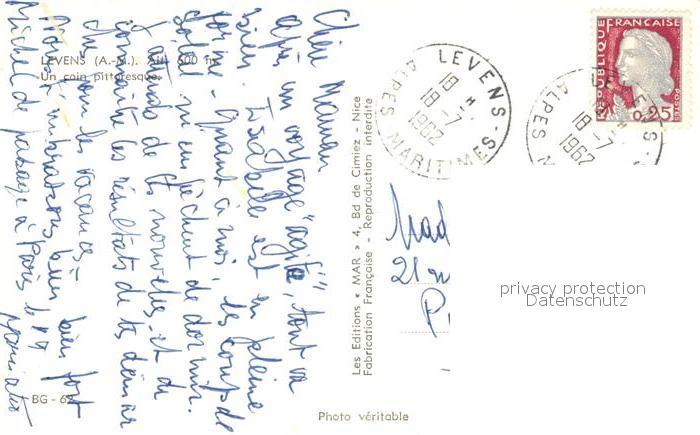 LEVENS (A.-M.). Alt. 600 m.
Un coin pittoresque.
Chère Maman
Après un voyage "agité", tout va
bien. Isabelle est en pleine
forme. Quant à moi, les coups de
soleil m'empêchent de dormir.
J'attends de tes nouvelles, et de
connaître les résultats de tes
les vacances -
bien fort
Michel de passage à Paris le
BG - 62
Les Editions « MAR » 4, Bd de Cimiez - Nice
Fabrication Française - Reproduction interdite
Photo véritable
LEVENS
18 H
18 -7
1962
ALPES MARITIMES
LEVENS
18 -7
1962
ALPES M
REPUBLIQUE FRANÇAISE
POSTES
0,25
Mad
21
P
privacy protection
Datenschutz